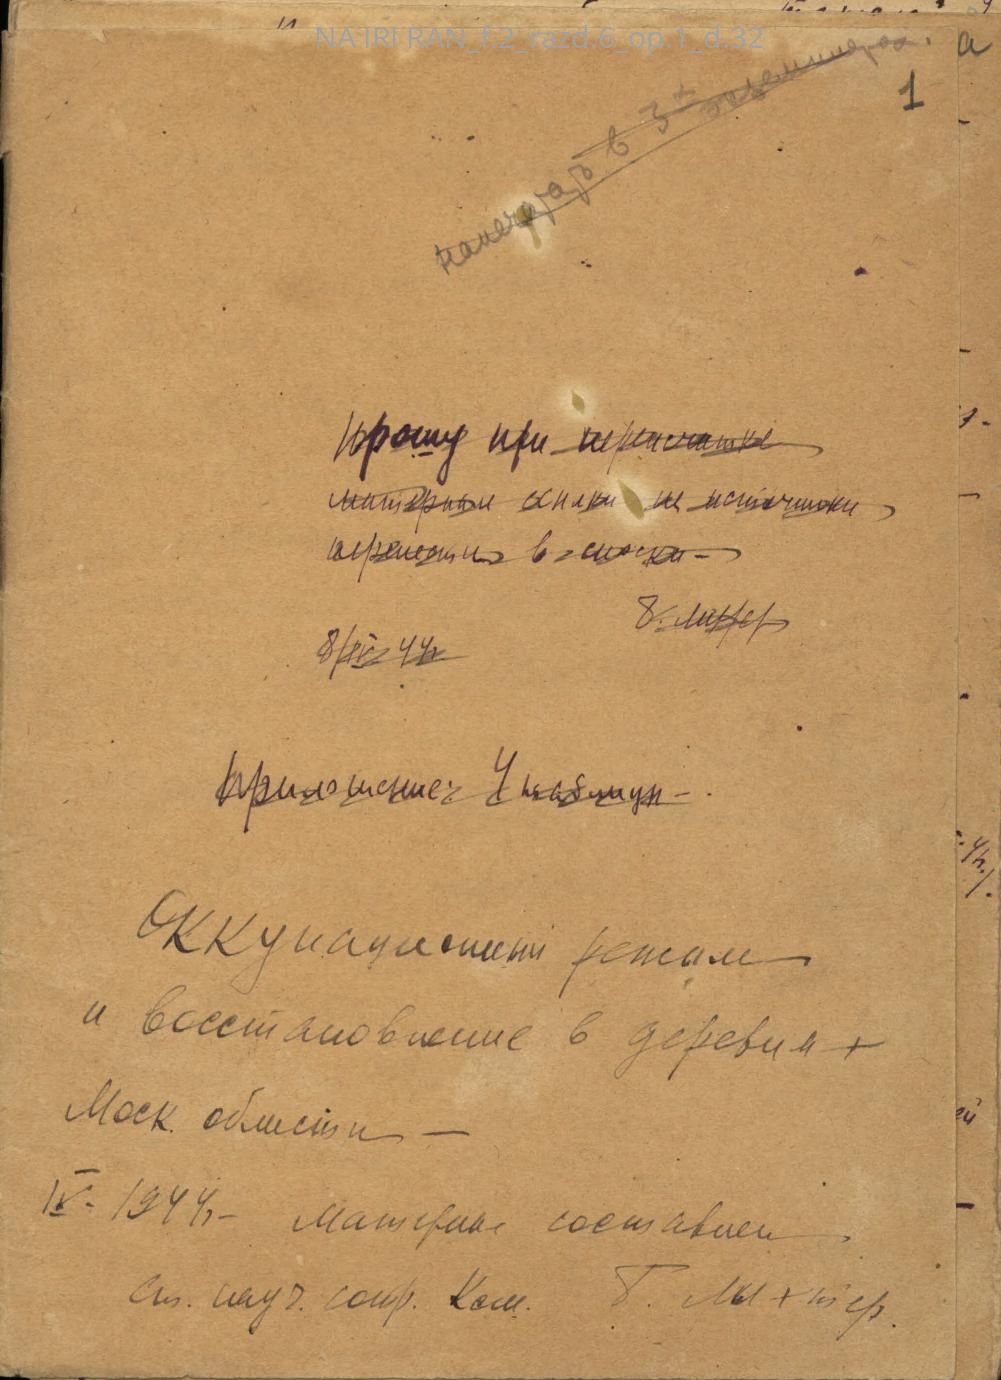 NA IRI RAN_f.2_razd.6_op.1_d.32
1
напечатать в 3х экземплярах.
Прошу при перепечатке
материала ссылки на источники
перенести в сноски
8/IV 44г
Приложение: 4 таблицы
Оккупационный режим
и восстановление в деревнях
Моск. области
IV- 1944г- Материал составлен
ст. науч. сотр. Ком. Б.